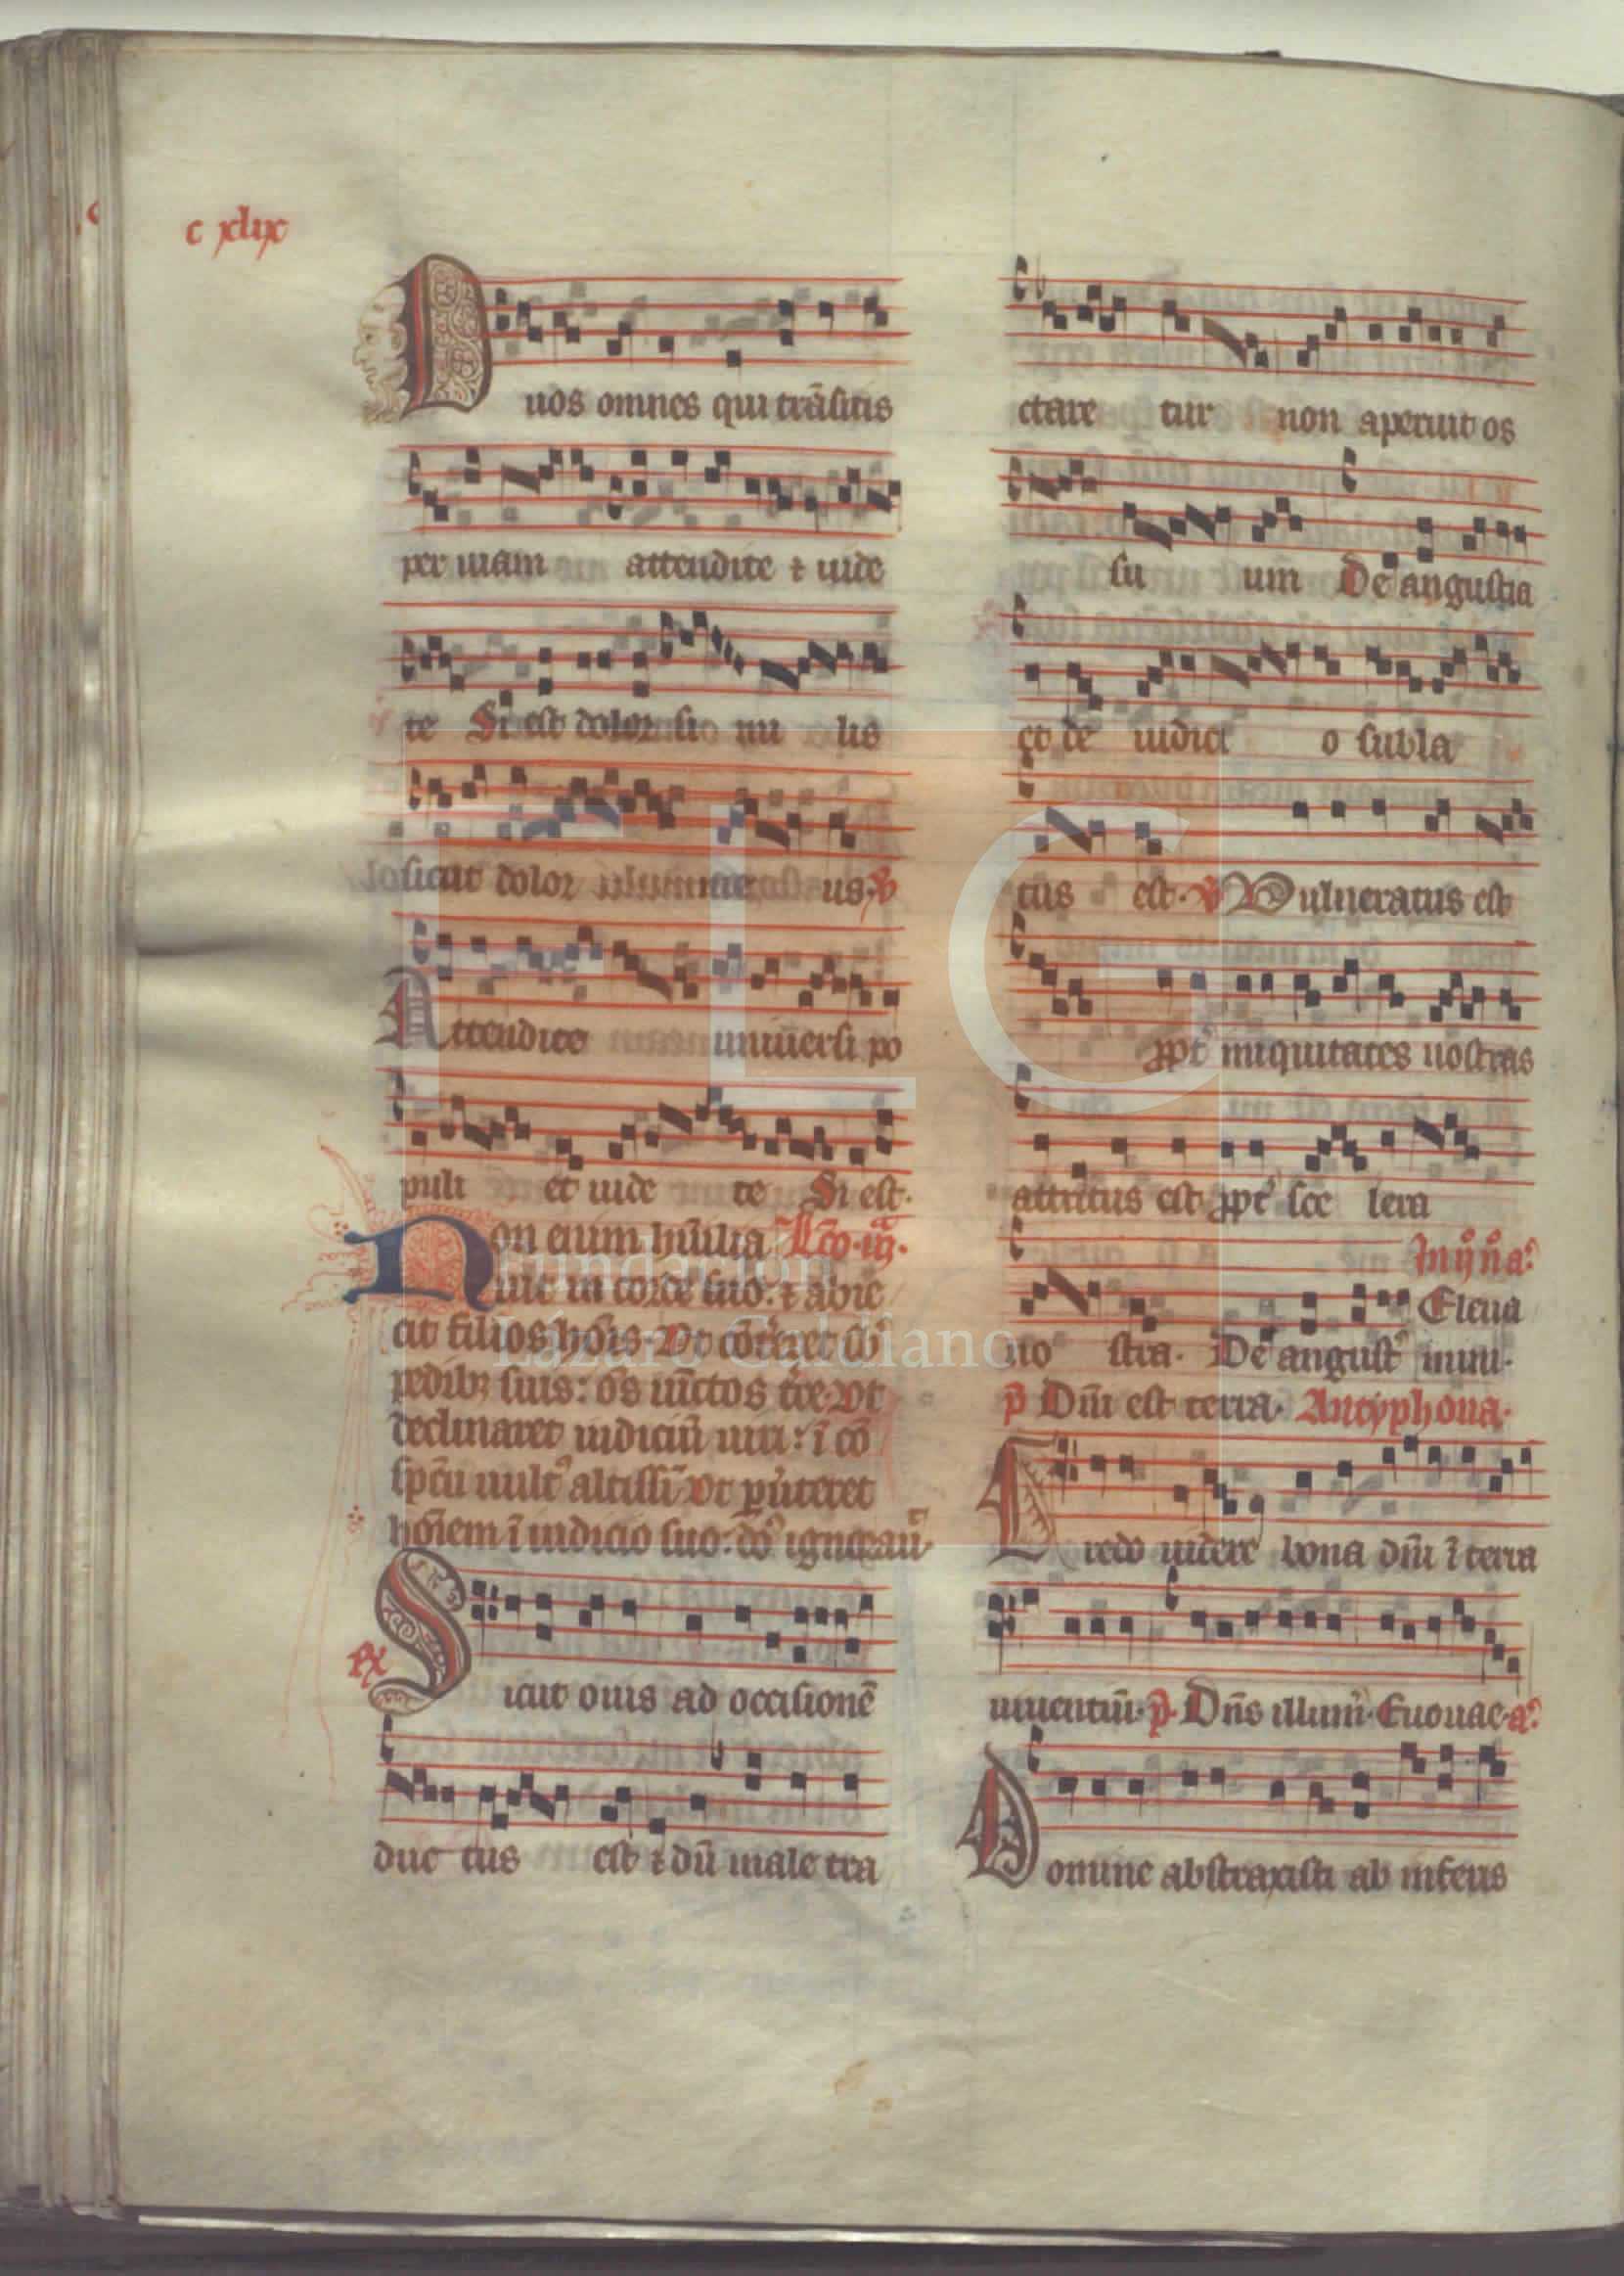 c xlix
O uos omnes qui trãsitis
per uiam attendite ⁊ uide
te Si est dolor si mi lis
sicut dolor me us. ℣
Attendite uniuersi po
puli et uide te Si est.
Non enim hũilia Lc̃o. iij.
uit in corde suo: ⁊ abie
cit filios hõis. Vt cõtereret sb̾
pedibꝫ suis: oẽs uĩctos tr̃e. Vt
declinaret iudiciũ uiri: ĩ cõ
spc̃u uult᾽ altissĩ. Vt ꝑũteret
hoĩem ĩ iudicio suo: dõ ignorauĩ.
Sicut ouis ad occisionẽ
duc tus est ⁊ dũ male tra
ctare tur non aperuit os
su um De angustia
et de iudici o subla
tus est. ℣ Vulneratus est
ꝓpt᾽ iniquitates nostras
attritus est ꝓpt᾽ sce lera
In ij᾽ n᾽ a᾽
Eleua
no stra. De angust᾽ inui.
p̃ Dñi est terra. Antyphona.
Credo uidere bona dñi ĩ terra
uiuentiũ. p̃. Dñs illumi᾽. Euouae. a᾽
Domine abstraxisti ab inferis
FLG
Fundación
Lázaro Galdiano